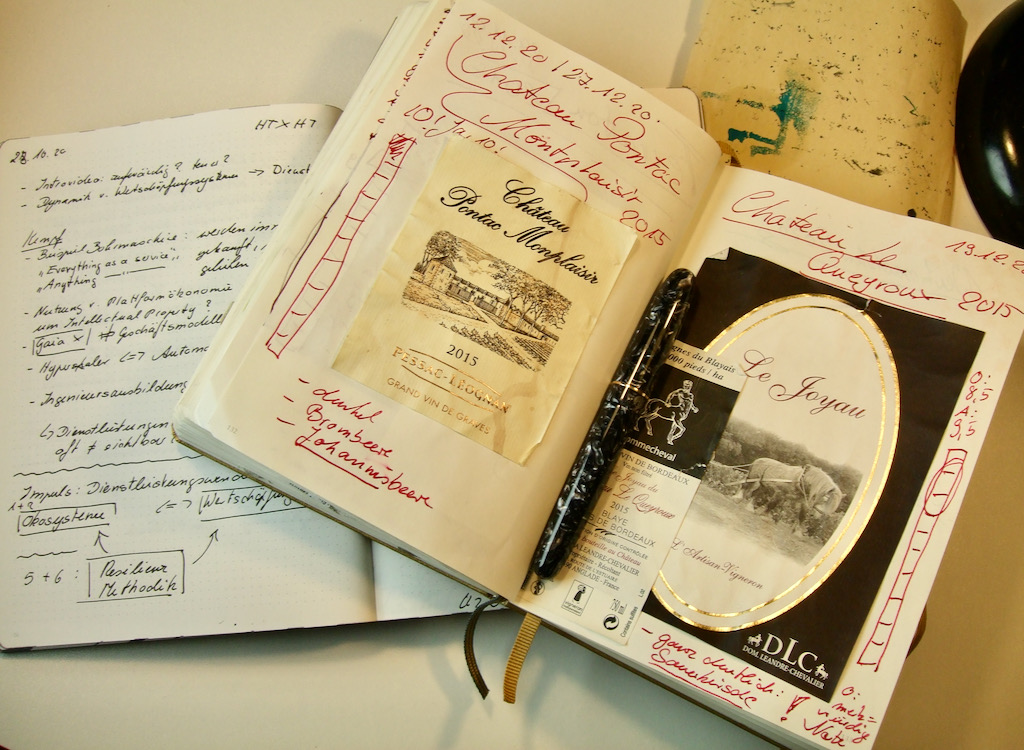 28.10.20
HTXH7
- Introvideo: aufwändig? teuer?
- Dynamik v. Wertschöpfungssysteme → Dienst
Kempf
- Beispiel Bohrmaschine: werden imm
"Everything as a service" gekauft,
"Anything geliehen
- Nutzung v. Plattformökonomie
um Intellectual Property?
Gaia X # Geschäftsmodell
- Hyperscaler <=> Automo
- Ingenieursausbildung
↳ Dienstleistungen
oft ≠ sichtbar
Impuls: Dienstleistungswende
1+2
Ökosysteme <=> Wertschöpfung
5+6: Resilienz
Methodik
12.12.20 / 27.12.20.
Chateau Pontac
Montplaisir
2015
10! Ja, 10!
Château
Pontac Monplaisir
2015
PESSAC-LÉOGNAN
GRAND VIN DE GRAVES
- dunkel
- Brombeere
- Johannisbeere
Château Le
Queyroux 2015
19.12.20
Le Joyau
L'Artisan-Vigneron
DLC
DOM. LEANDRE-CHEVALIER
ignes du Blayais
000 pieds / ha
ommecheval
VIN DE BORDEAUX
Le Joyau du
Le Queyroux
2015
BLAYE
DE BORDEAUX
LEANDRE-CHEVALIER
ANGLADE - France
O:
8,5
A:
9,5
- ganz deutlich:
Sauerkirsche !
O:
merk-
würdige
Note